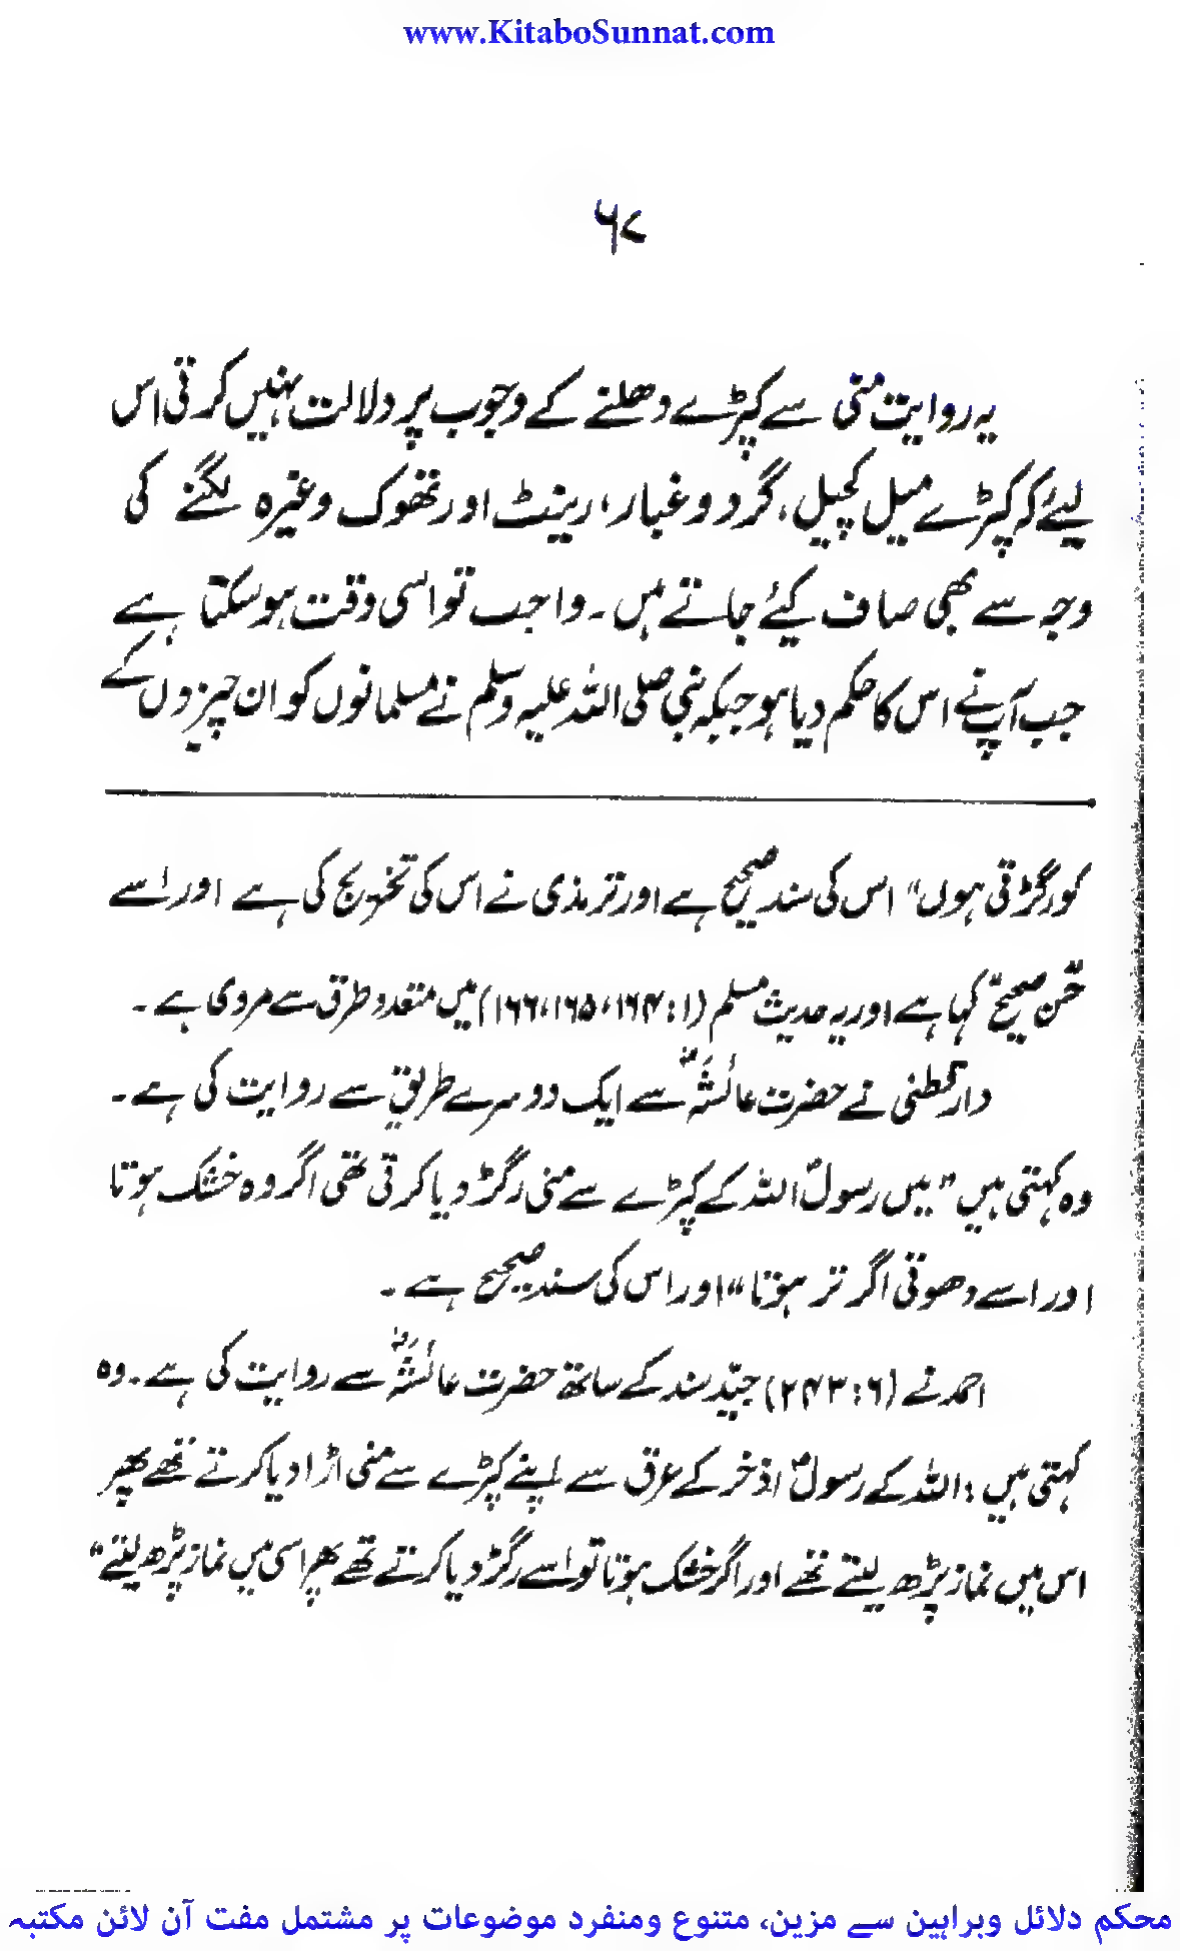 www.KitaboSunnat.com
۶۷
یہ روایت منی سے کپڑے دھلنے کے وجوب پر دلالت نہیں کرتی اس
لیے کہ کپڑے میل کچیل، گرد و غبار، رینٹ اور تھوک وغیرہ لگنے کی
وجہ سے بھی صاف کیئے جاتے ہیں۔ واجب تو اسی وقت ہو سکتا ہے
جب آپ نے اس کا حکم دیا ہو جبکہ نبی صلی اللہ علیہ وسلم نے مسلمانوں کو ان چیزوں کے
کو رگڑتی ہوں" اس کی سند صحیح ہے اور ترمذی نے اس کی تخریج کی ہے اور اسے
حسن صحیح کہا ہے اور یہ حدیث مسلم (۱:۱۶۴، ۱۶۵، ۱۶۶) میں متعدد طرق سے مروی ہے۔
دارقطنی نے حضرت عائشہؓ سے ایک دوسرے طریق سے روایت کی ہے۔
وہ کہتی ہیں "میں رسولؐ اللہ کے کپڑے سے منی رگڑ دیا کرتی تھی اگر وہ خشک ہوتا
اور اسے دھوتی اگر تر ہوتا" اور اس کی سند صحیح ہے۔
احمد نے (۶:۲۴۳) جیّد سند کے ساتھ حضرت عائشہؓ سے روایت کی ہے۔ وہ
کہتی ہیں: اللہ کے رسولؐ اذخر کے عرق سے اپنے کپڑے سے منی اڑا دیا کرتے تھے پھر
اس میں نماز پڑھ لیتے تھے اور اگر خشک ہوتا تو اسے رگڑ دیا کرتے تھے پھر اسی میں نماز پڑھ لیتے"
محکم دلائل وبراہین سے مزین، متنوع ومنفرد موضوعات پر مشتمل مفت آن لائن مکتبہ